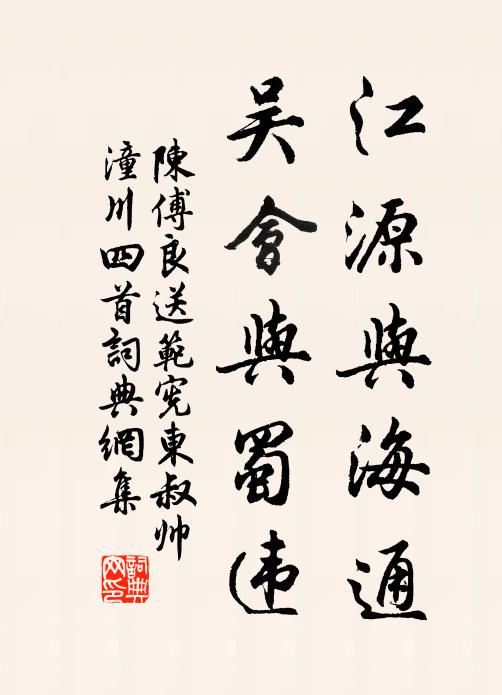 江源與海通
吳會與蜀违
陳傅良送範宪東叔帅
潼川四首詞典網集
詞典
网印